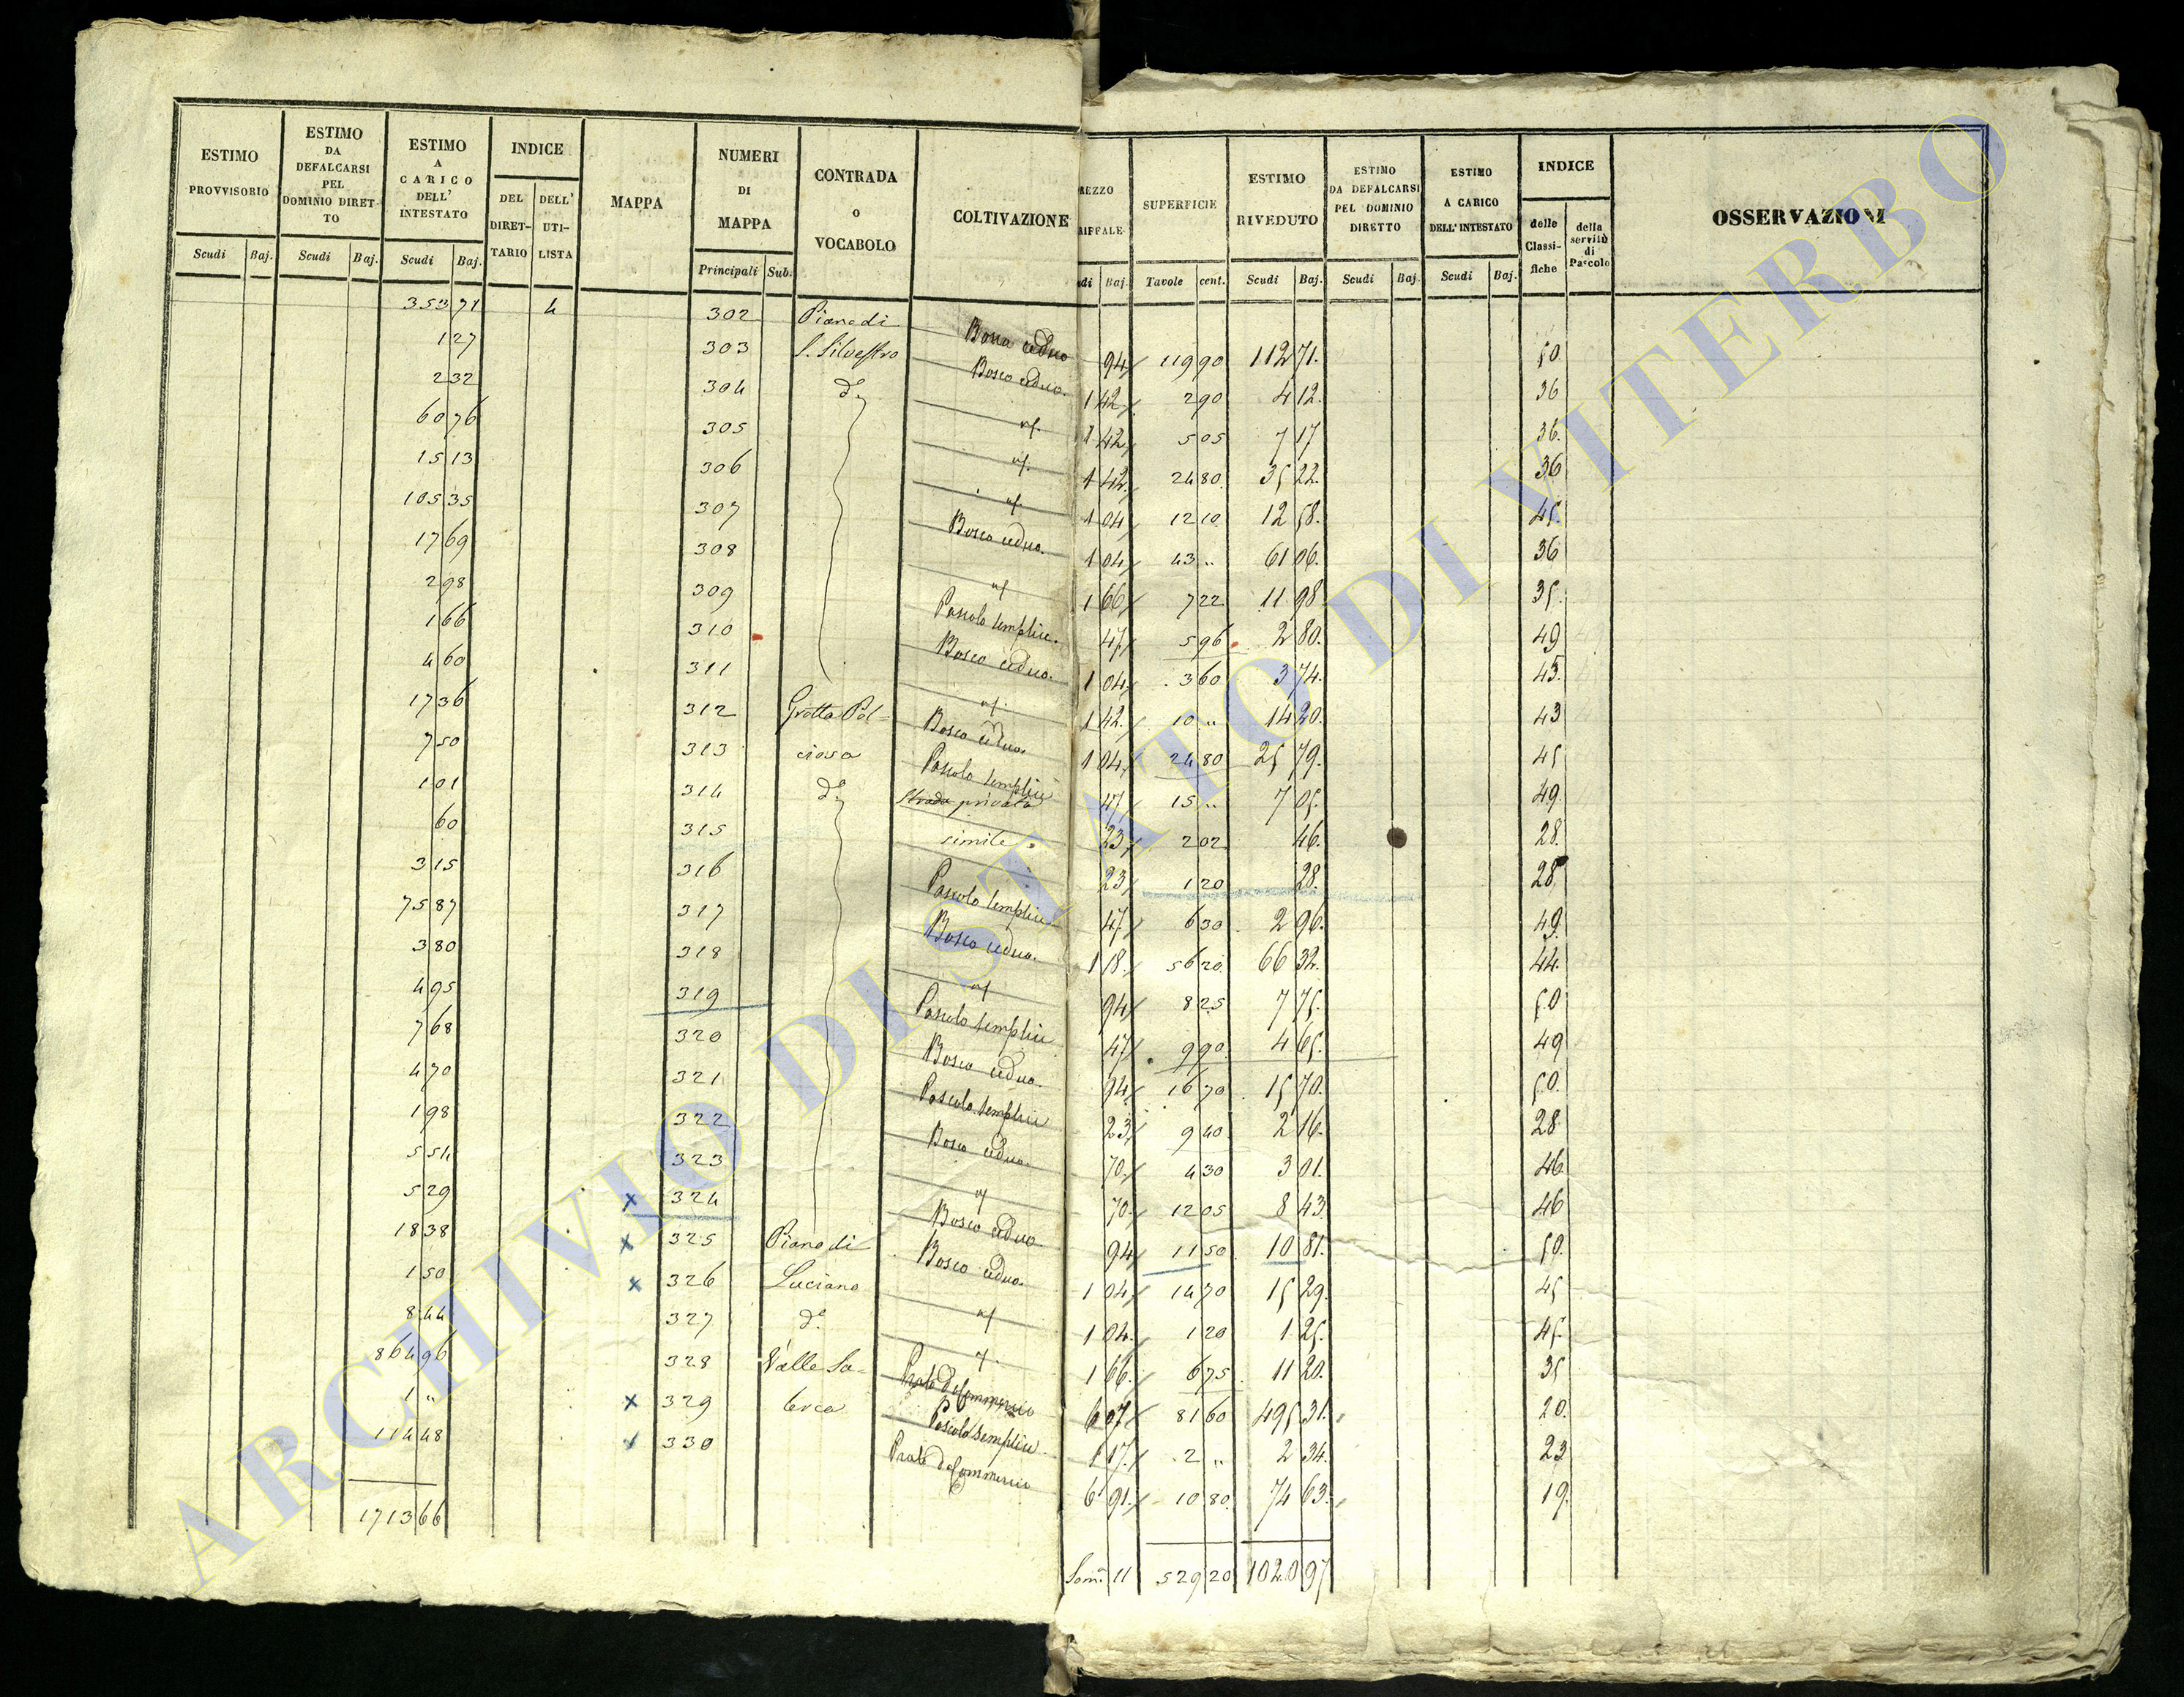 ESTIMO PROVVISORIO
ESTIMO DA DEFALCARSI PEL DOMINIO DIRETTO
ESTIMO A CARICO DELL' INTESTATO
INDICE
DEL DIRETTARIO
DELL' UTILISTA
MAPPA
NUMERI DI MAPPA
CONTRADA o VOCABOLO
COLTIVAZIONE
REZZO RIFFALE
SUPERFICIE
ESTIMO RIVEDUTO
ESTIMO DA DEFALCARSI PEL DOMINIO DIRETTO
ESTIMO A CARICO DELL' INTESTATO
INDICE
delle Classifiche
della servitù di Pascolo
OSSERVAZIONI
Scudi Baj. Scudi Baj. Scudi Baj. Principali Sub. di Baj. Tavole cent. Scudi Baj. Scudi Baj. Scudi Baj.
353 71 4 302 Piano di Bosco ceduo 94 119 90 112 71. 50
1 27 303 S. Silvestro Bosco ceduo. 1 42 2 90 4 12. 36
2 32 304 d.° 1 42 5 05 7 17 36.
60 76 305 1 42 24 80 35 22. 36
15 13 306 1 04 12 10 12 58. 45.
105 35 307 Bosco ceduo. 1 04 43 " 61 06. 36
17 69 308 1 66 7 22 11 98 35.
2 98 309 Pascolo semplice. 47 5 96 2 80. 49
1 66 310 Bosco ceduo. 1 04 3 60 3 74. 43.
4 60 311 1 42. 10 " 14 20. 43
17 36 312 Grotta Pal= Bosco ceduo. 1 04 24 80 25 79. 45
7 50 313 ciosa Pascolo semplice 47 15 " 7 05. 49
1 01 314 d.° Strada privata 23 2 02 46. 28.
60 315 simile 23 1 20 28. 28.
3 15 316 Pascolo semplice 47 6 30 2 96. 49.
75 87 317 Bosco ceduo. 1 18. 56 20. 66 32. 44.
3 80 318 94 8 25 7 75. 50
4 95 319 Pascolo semplice 47 9 90 4 65. 49
7 68 320 Bosco ceduo. 94 16 70 15 70. 50.
4 70 321 Pascolo semplice 23 9 40 2 16. 28
1 98 322 Bosco ceduo. 70. 4 30 3 01. 46
5 54 323 70. 12 05 8 43. 46
5 29 x 324 Bosco ceduo 94 11 50 10 81. 50.
18 38 x 325 Piano di Bosco ceduo. 1 04 14 70 15 29. 45
1 50 x 326 Luciano 1 04. 1 20 1 25. 45.
8 44 327 d.° 1 66. 6 75 11 20. 35
864 96 328 Valle Sa= Prato da Commercio 6 07 81 60 495 31. 20.
1 " x 329 Pascolo semplice 1 17. 2 " 2 34. 23
114 48 330 Prato da Commercio 6 91. 10 80. 74 63. 19.
1713 66 Som.ª 11 529 20 1020 97
ARCHIVIO DI STATO DI VITERBO